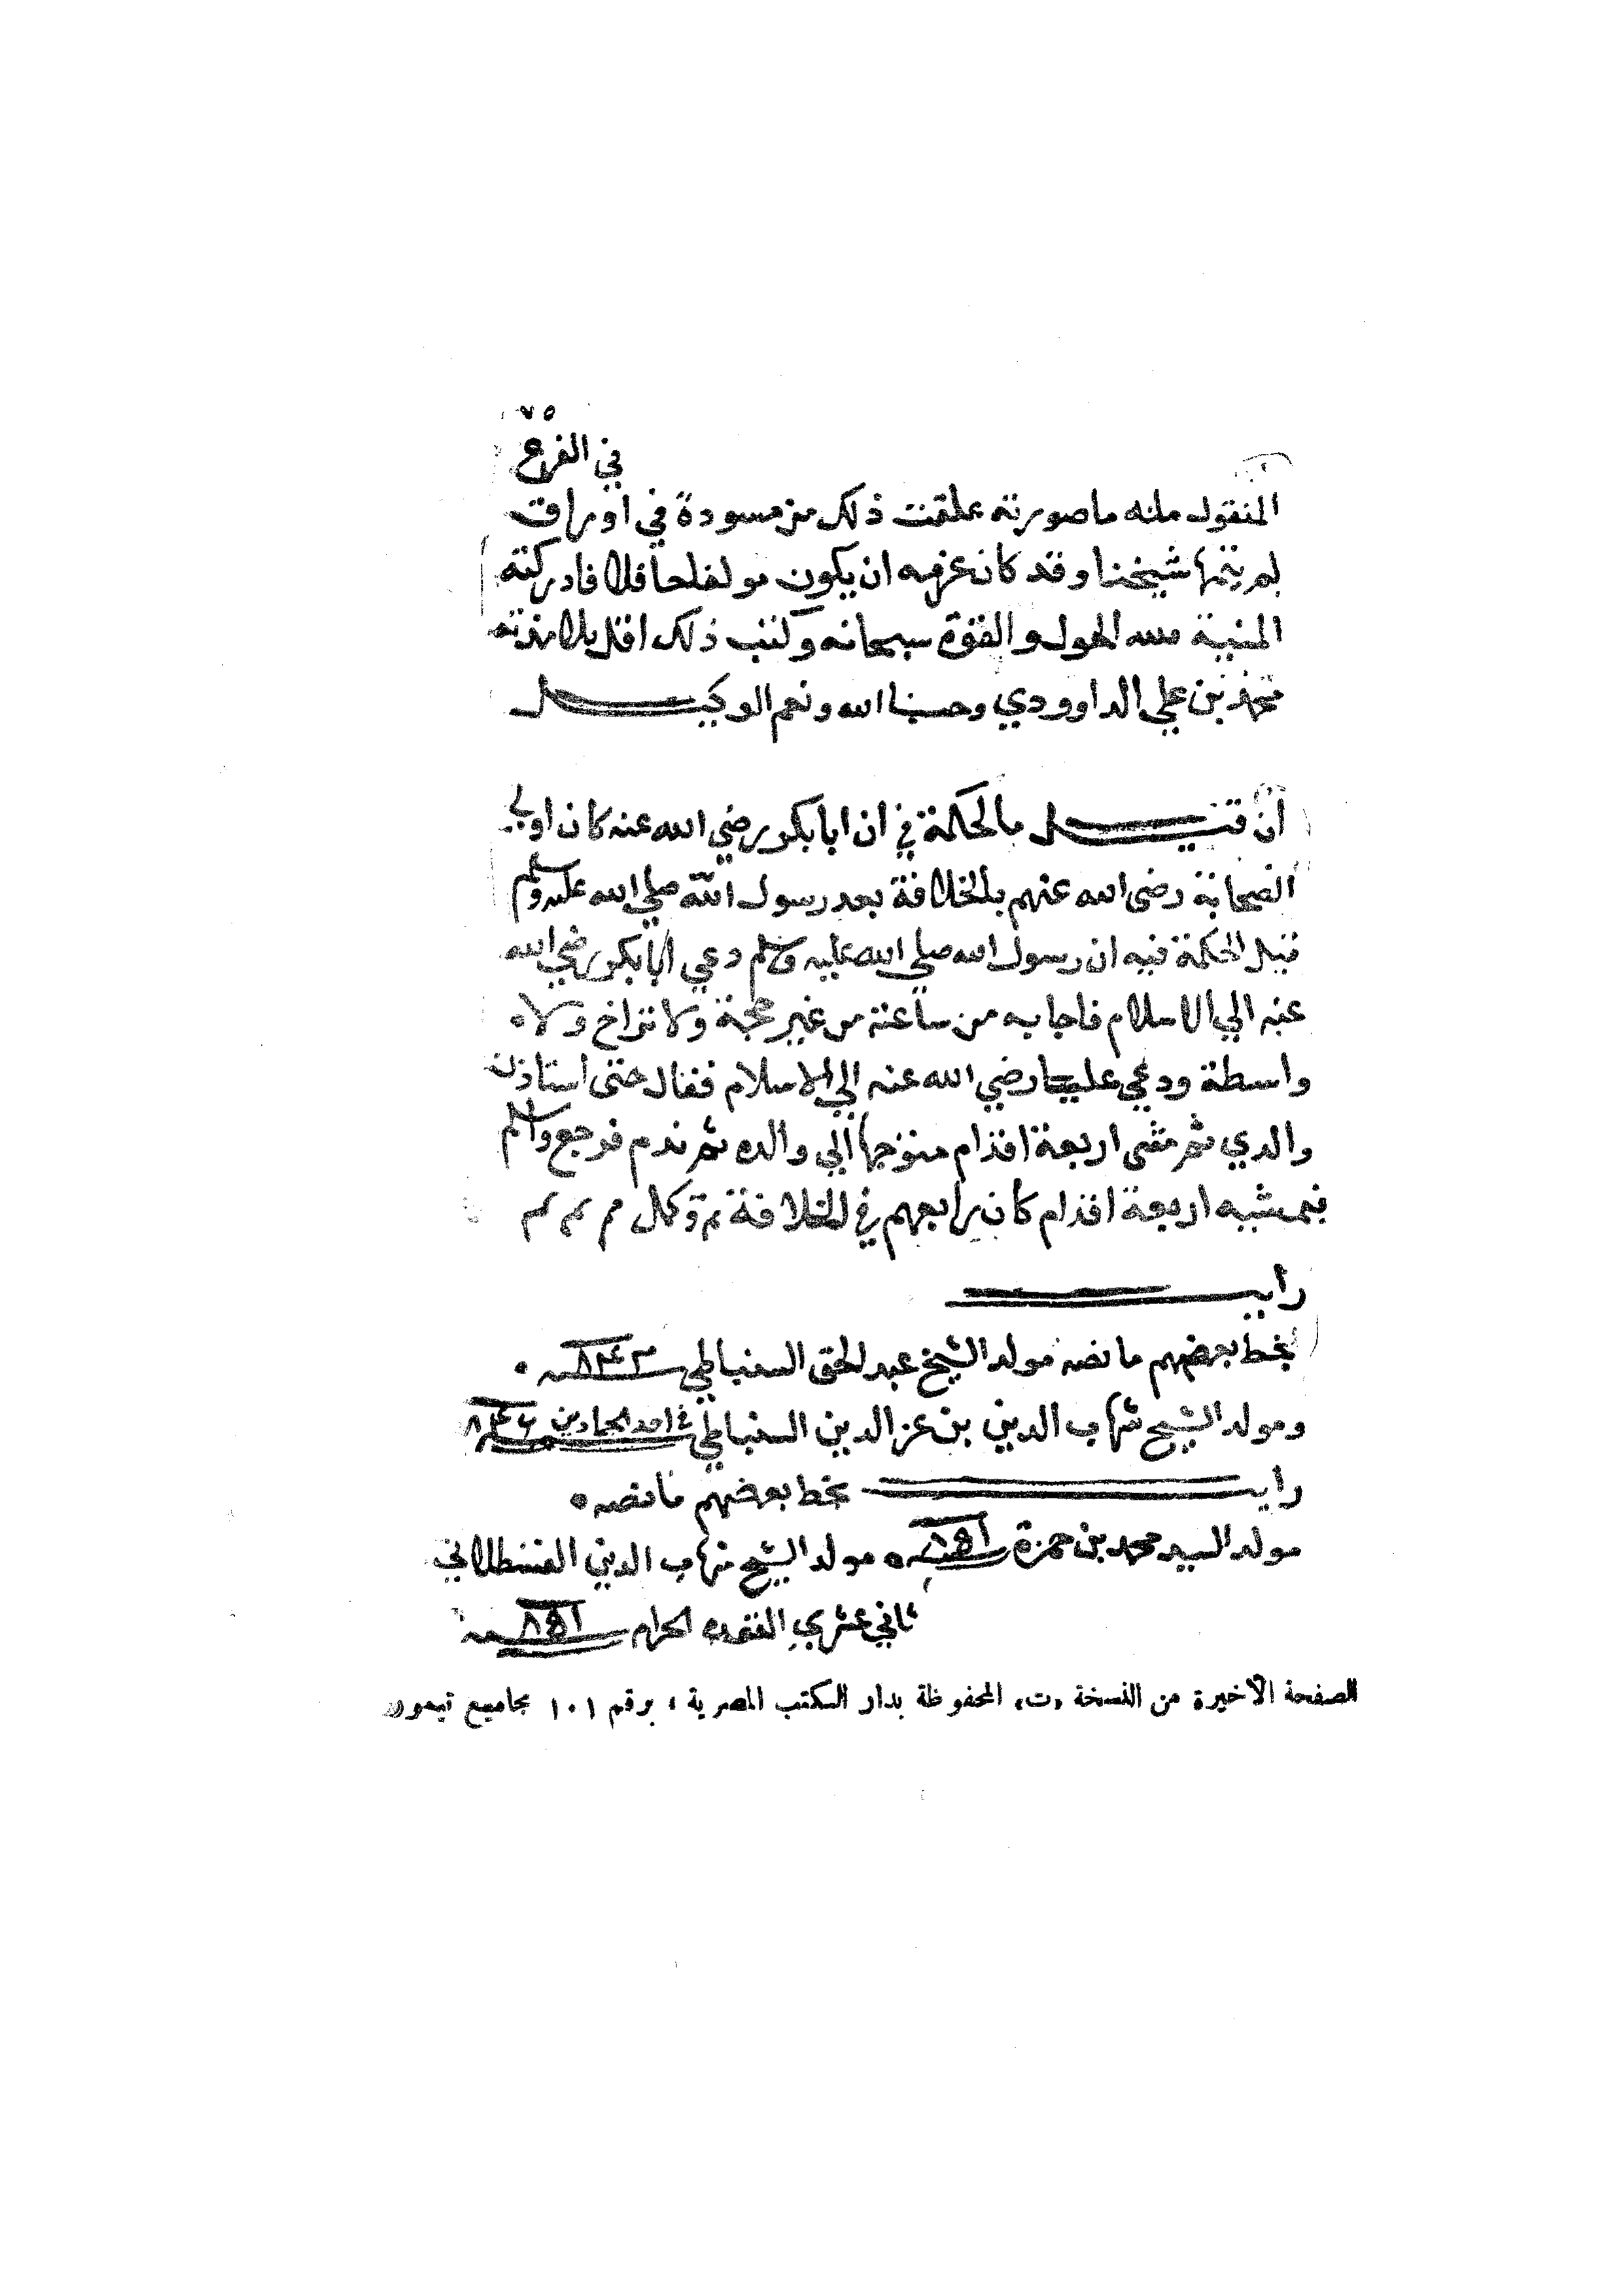 ٧٥
في الفرع
المنقول منه ما صورته علقت ذلك من مسودة في اوراق
لم يتمها شيخنا وقد كان عزمه ان يكون مولفا حافلا فادركته
المنية فلله الحول والقوة سبحانه وكتب ذلك اقل تلامذته
محمد بن علي الداوودي وحسبنا الله ونعم الوكيل
ان قيل ما الحكمة في ان ابا بكر رضي الله عنه كان اولي
الصحابة رضى الله عنهم بالخلافة بعد رسول الله صلي الله عليه وسلم
قيل الحكمة فيه ان رسول الله صلي الله عليه وسلم دعي ابا بكر رضي الله
عنه الي الاسلام فاجابه من ساعته من غير حجة ولا تراخ ولا
واسطة ودعي عليا رضي الله عنه الي الاسلام فقال حتى استاذن
والدي ثم مشى اربعة اقدام متوجها الي والده ثم ندم فرجع واسلم
فبمشيه اربعة اقدام كان رابعهم في الخلافة تم وكمل
رايت
بخط بعضهم ما نصه مولد الشيخ عبد الحق السنباطي سنة ٨٤٢
ومولد الشيخ شهاب الدين بن عز الدين السنباطي في احد الجمادين سنة
رايت بخط بعضهم ما نصه
مولد السيد محمد بن حمزة سنة ٨٥١ مولد الشيخ شهاب الدين القسطلاني
ثاني عشري القعده الحرام سنة ٨٥١
الصفحة الأخيرة من النسخة «ت» المحفوظة بدار الكتب المصرية ، برقم ١٠١ مجاميع تيمور